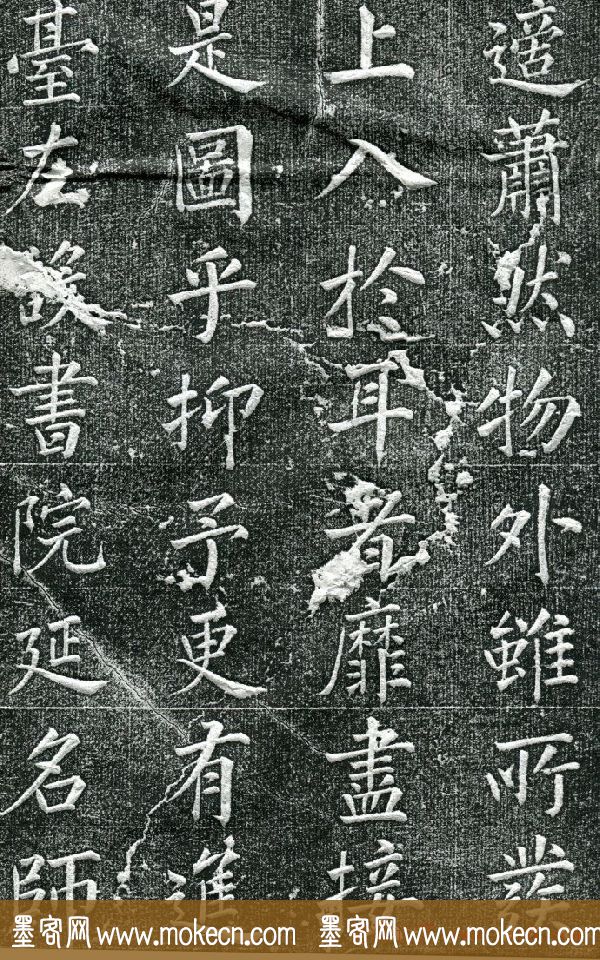 適蕭然物外雖所
上入於耳者靡盡接
是圖乎抑予更有進
臺左設書院延名師
墨客网 www.mokecn.com 墨客网 www.mokecn.com